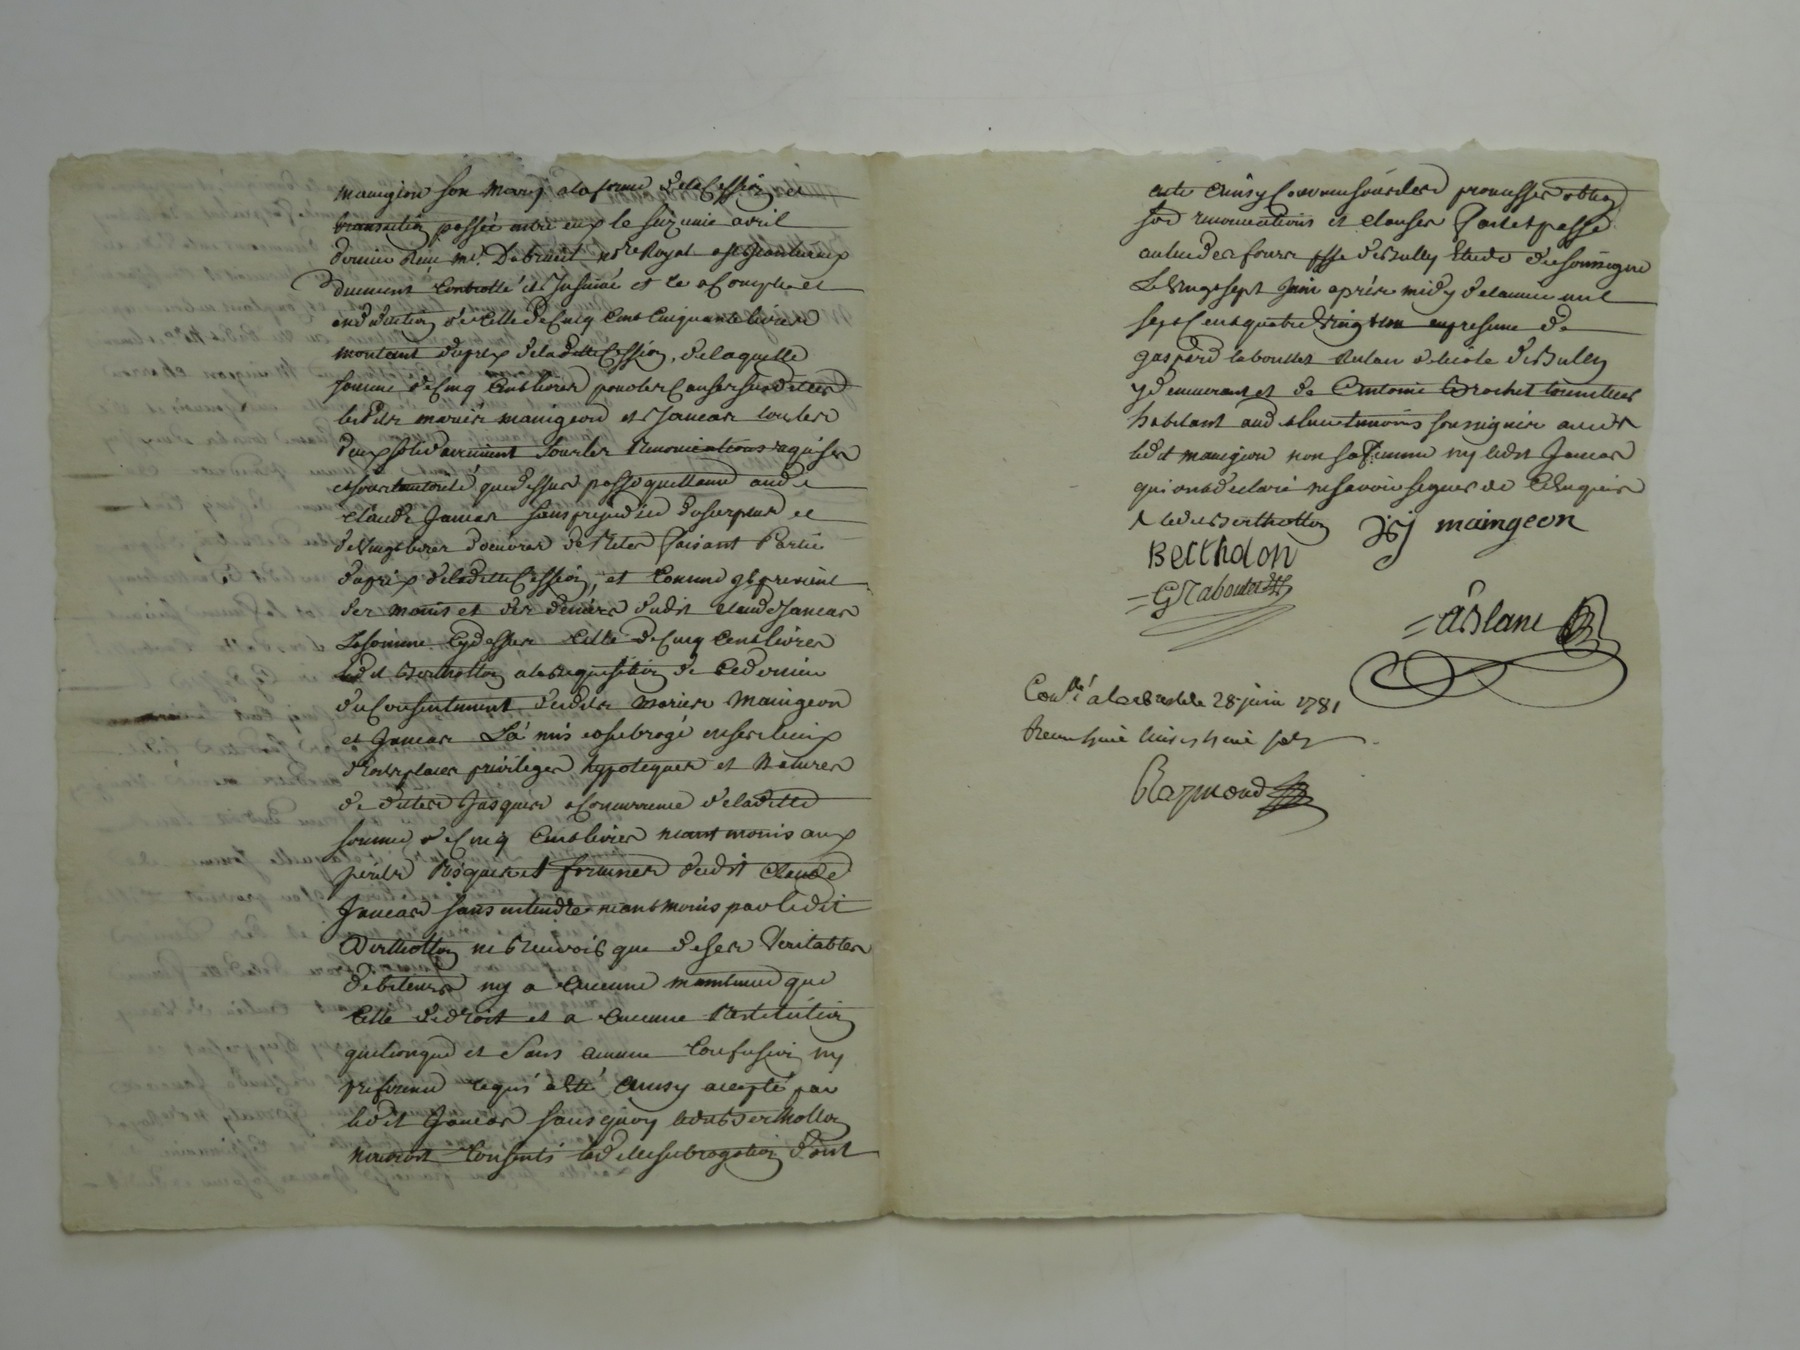 maingeon son mary a la forme de la Cession et
transaction passée entre eux le suzieme avril
dernier Reçu me. Dubreuil nre Royal a st Jeanlevieux
duement Controllé et Insinué et ce a Compte et
en diction de celle de Cinq Cent Cinquante livres
montant du prix de la ditte Cession, de laquelle
somme de Cinq Cent livres pour les Causes susdittes
lesdits mariés maingeon et Jancar tous les
deux solidairement sous les Renonciations requises
et sous l'autorité que dessus passe quittance audit
Claude Jancar sans prejudice du surplus et
de vingt livres d'oeuvres de faisant Partie
du prix de la ditte Cession, et Comme provient
des mains et des deniers dudit claude Jancar
la somme Cy dessus Celle de Cinq Cent livres
ledit Berthollon a la Requisition de Ce dernier
du Consentement desdits mariés Maingeon
et Jancar L'a mis et subrogé en ses lieux
droits places privileges hypoteques et Natures
de dittes Jusques a Concurrence de la ditte
somme de Cinq Cent livres neant moins aux
perils Risques et fortunes dudit Claude
Jancar sans entendre neant moins par ledit
Berthollon ne que de ses Veritables
debiteurs ny a Aucune maintenue que
Celle de droit et a Aucune Restitution
quelconque et Sans Aucune Confusion ny
preference ce qui a été Ainsy accepté par
ledit Jancar sans quoy ledit Berthollon
n'auroit Consenti ladite subrogation dont
acte Ainsy Convenu sous les promesses oblion
sod renonciations et Clauses fait et passé
au lieu des fours psse de Bully Etude du soussigné
Le vingt sept Juin après midy de l'année mil
sept Cent quatre vingt un en presence de
gaspard tabouttet de de Bully
y demeurant et de Antoine Brochet
habitant audit lieu temoins soussignés avec
ledit maingeon non sa femme ny ledit Jancar
qui ont declaré ne savoir signer de Ce Enquis
& ledit Berthollon
Berthdon
J maingeon
G Taboutet
Aslane
Conllé a Labresle le 28 juin 1781
Recu huit sols
Raymond